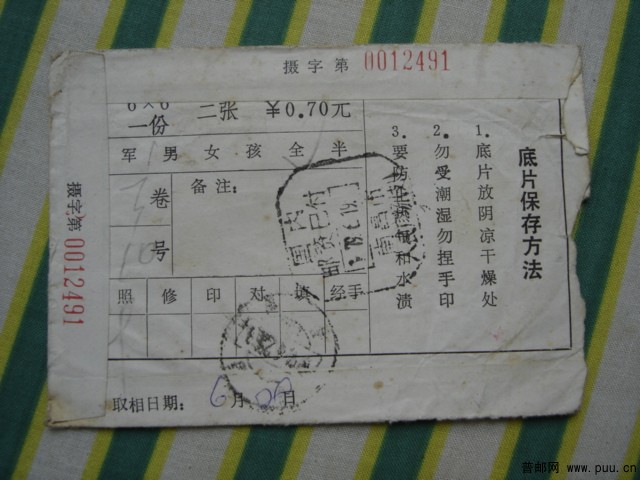 摄字第 0012491
6×6 二张 ¥0.70元
一份
军 男 女 孩 全 半
卷 备注:
号
照 修 印 对 填 经手
取相日期: 6月 日
摄字第 0012491
国内
邮资已付
南昌市
底片保存方法
1. 底片放阴凉干燥处
2. 勿受潮湿勿捏手印
3. 要防 和水渍
普邮网 www.puu.cn